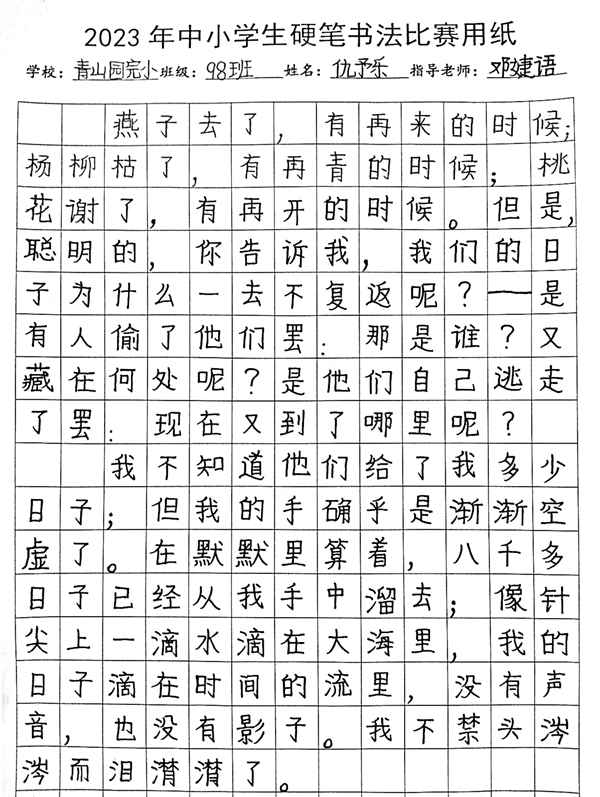 2023年中小学生硬笔书法比赛用纸
学校：青山园完小 班级：98班 姓名：仇予乐 指导老师：邓婕语
燕子去了，有再来的时候；
杨柳枯了，有再青的时候；桃
花谢了，有再开的时候。但是，
聪明的，你告诉我，我们的日
子为什么一去不复返呢？——是
有人偷了他们罢：那是谁？又
藏在何处呢？是他们自己逃走
了罢：现在又到了哪里呢？
我不知道他们给了我多少
日子；但我的手确乎是渐渐空
虚了。在默默里算着，八千多
日子已经从我手中溜去；像针
尖上一滴水滴在大海里，我的
日子滴在时间的流里，没有声
音，也没有影子。我不禁头涔
涔而泪潸潸了。